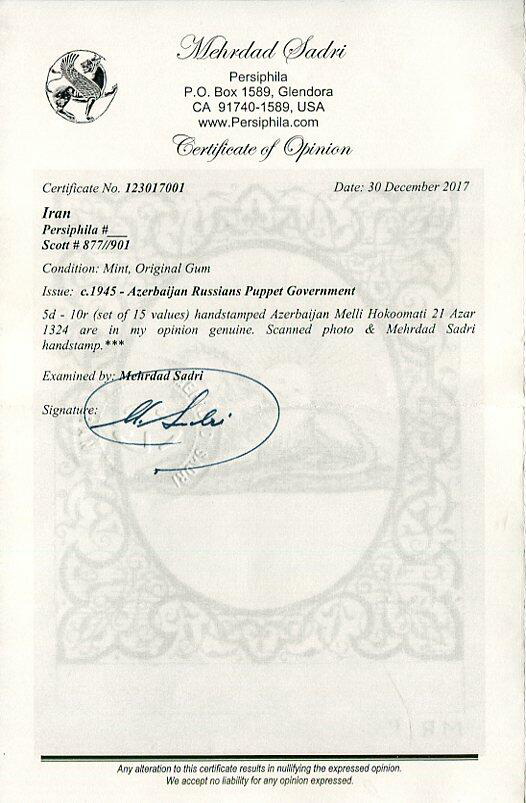 Mehrdad Sadri
Persiphila
P.O. Box 1589, Glendora
CA 91740-1589, USA
www.Persiphila.com
Certificate of Opinion
Certificate No. 123017001 Date: 30 December 2017
Iran
Persiphila #___
Scott # 877//901
Condition: Mint, Original Gum
Issue: c.1945 - Azerbaijan Russians Puppet Government
5d - 10r (set of 15 values) handstamped Azerbaijan Melli Hokoomati 21 Azar
1324 are in my opinion genuine. Scanned photo & Mehrdad Sadri
handstamp.***
Examined by: Mehrdad Sadri
Signature:
M. Sadri
Any alteration to this certificate results in nullifying the expressed opinion.
We accept no liability for any opinion expressed.